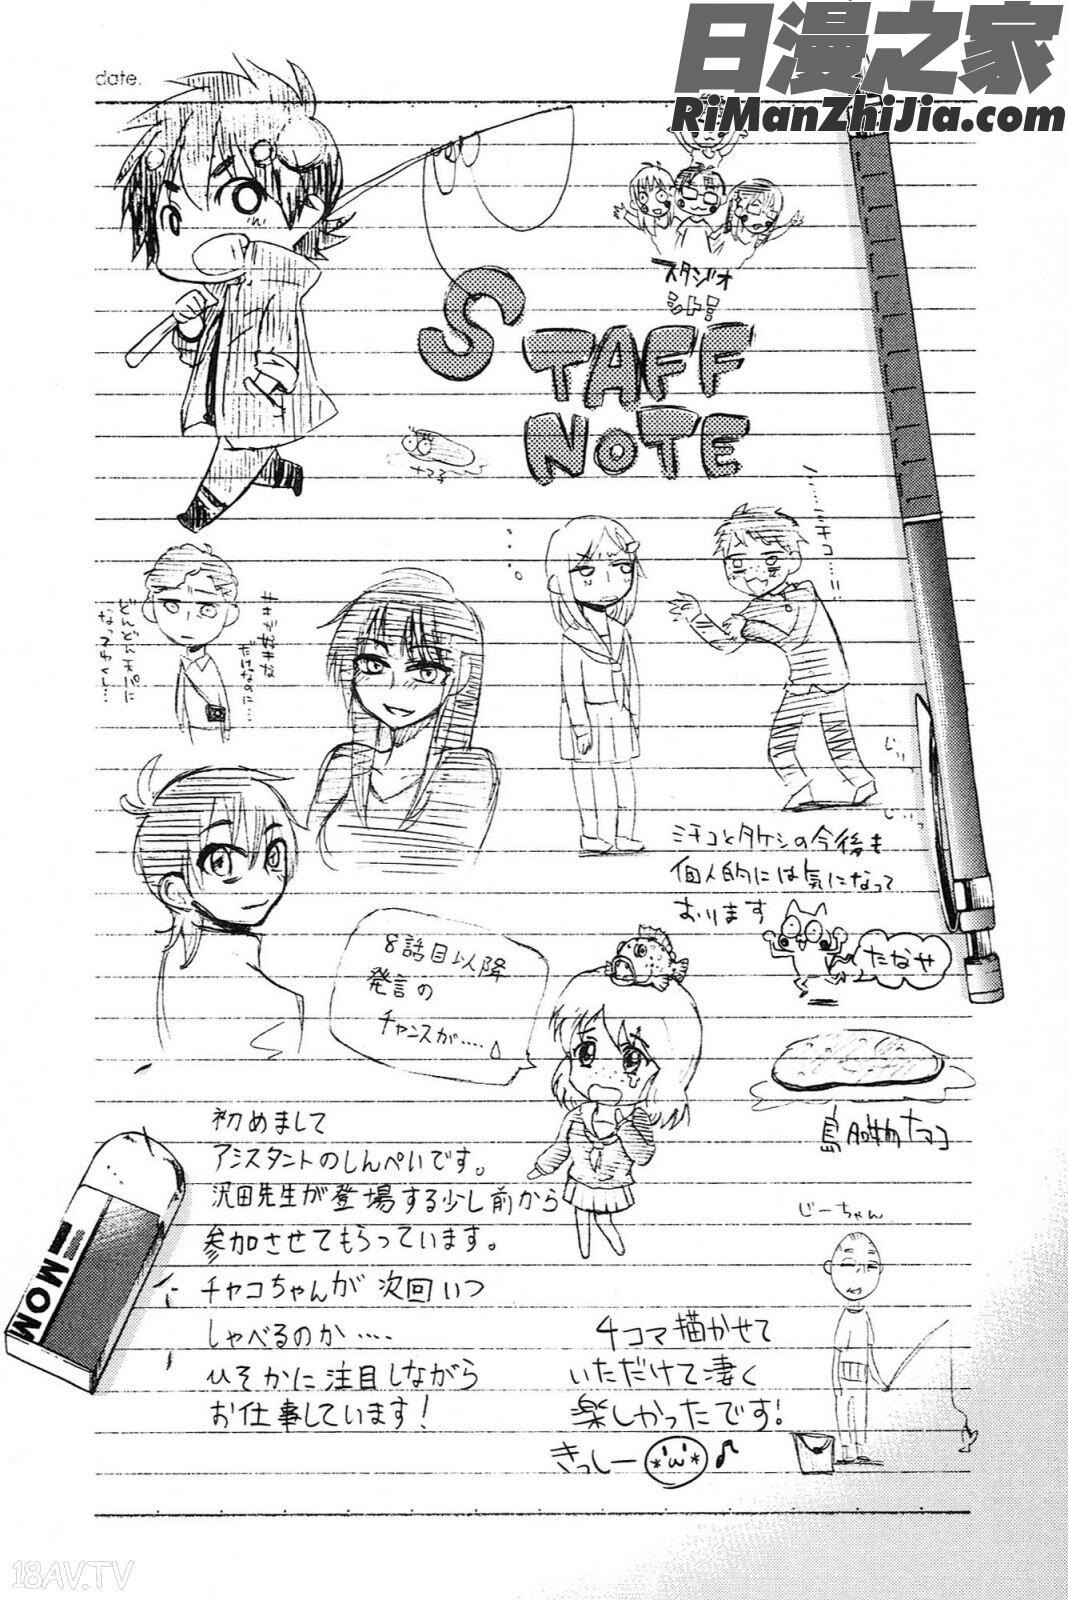 日漫之家
RiManZhiJia.com
date.
スタジオ
シトミ
STAFF
NOTE
ナマコ
キホが好きな
だけなのに…
どんどん天パに
なってゆくし…
ミチコ……!!
じぃ
じぃっ
ミチコとタケシの今後も
個人的には気になって
おります
たなや
8話目以降
発言の
チャンスが....
島の産物ナマコ
初めまして
アシスタントのしんぺいです。
沢田先生が登場する少し前から
参加させてもらっています。
チャコちゃんが次回いつ
しゃべるのか....
ひそかに注目しながら
お仕事しています!
じーちゃん
4コマ描かせて
いただけて凄く
楽しかったです!
きっしー
MOM
18AV.TV